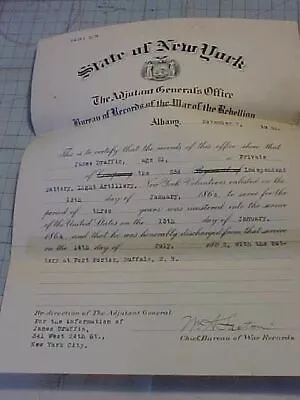 State of New York
The Adjutant General's Office
Bureau of Records of the War of the Rebellion
Albany, November
This is to certify that the records of this office show that
James Bruffin, age 21, a Private
of Company the Regiment Independent
Battery, Light Artillery, New York Volunteers enlisted on the
13th day of January, 1864 to serve for the
period of three years was mustered into the service
of the United States on the day of January,
1864 and that he was honorably discharged from that service
on the 14th day of July, with the Bat-
tery at Fort Porter, Buffalo, N. Y.
By direction of The Adjutant General
For the information of
James Bruffin,
341 West 24th St.,
New York City.
Chief, Bureau of War Records